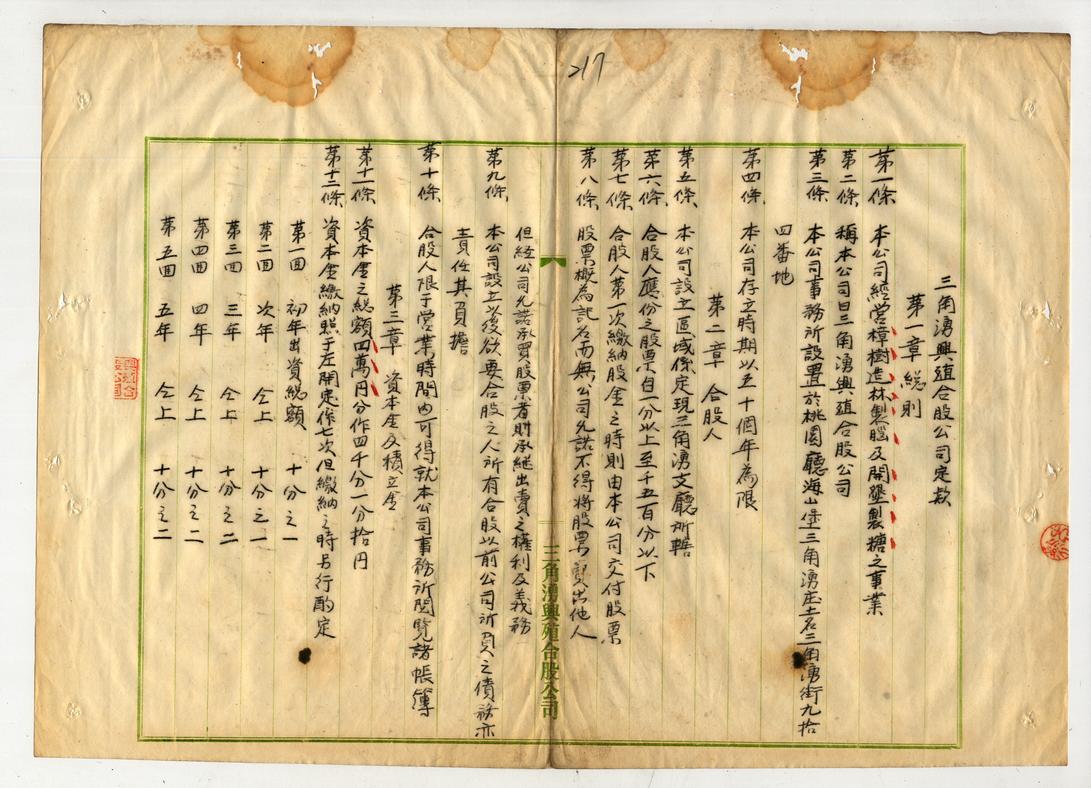 217
三角湧興殖合股公司定款
第一章 総則
第一條、本公司經営樟樹造林製腦及開墾製糖之事業
第二條、稱本公司曰三角湧興殖合股公司
第三條、本公司事務所設置於桃園廳海山堡三角湧庄土名三角湧街九拾
四番地
第四條、本公司存立時期以五十個年為限
第二章 合股人
第五條、本公司設立區域係定現三角湧支廳所轄
第六條、合股人應份之股票自一分以上至千五百分以下
第七條、合股人第一次繳納股金之時則由本公司交付股票
第八條、股票概為記名而無公司允諾不得將股票賣出他人
三角湧興殖合股公司
但経公司允諾承買股票者則承継出賣之権利及義務
第九條、本公司設立以後欲要合股之人所有合股以前公司所負之債務亦
責任其負擔
第十條、合股人限于営業時間内可得就本公司事務所閲覧諸帳簿
第三章 資本金及積立金
第十一條、資本金之総額四萬円分作四千分一分拾円
第十二條、資本金繳納照于左開定作七次但繳納之時另行酌定
第一回 初年出資総額 十分之一
第二回 次年 仝上 十分之一
第三回 三年 仝上 十分之二
第四回 四年 仝上 十分之二
第五回 五年 仝上 十分之二